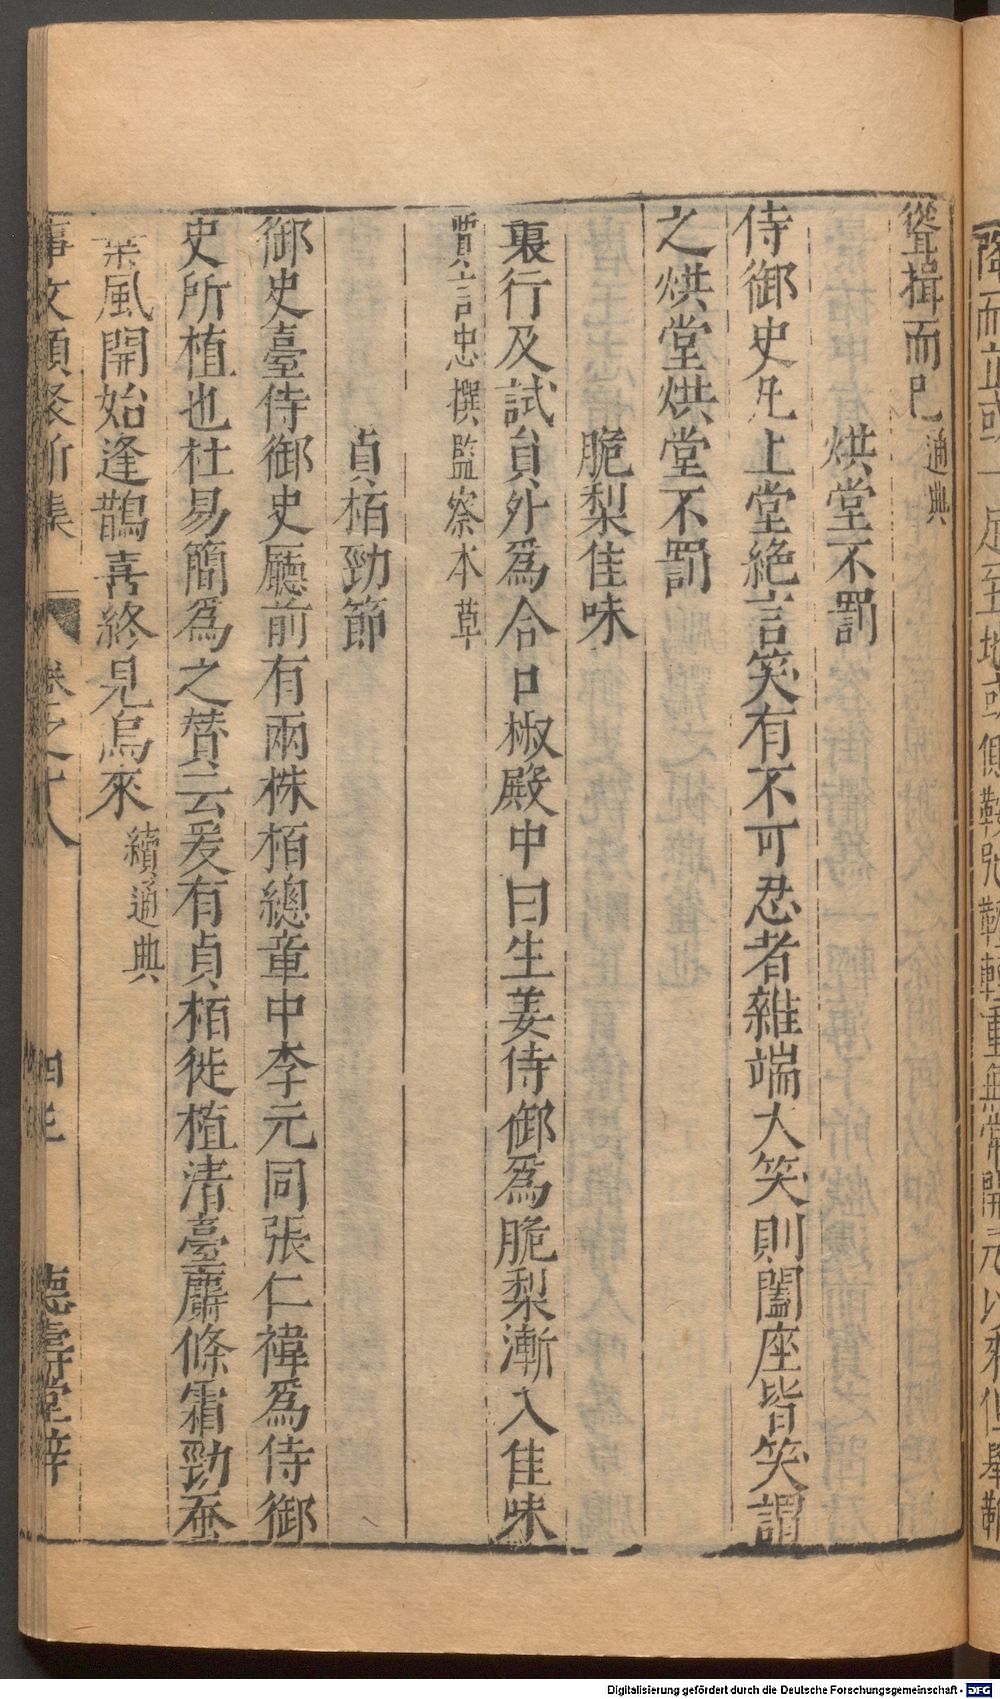 聳揖而已通典
烘堂不罰
侍御史凡上堂絕言笑有不可忍者雜端大笑則闔座皆笑謂
之烘堂烘堂不罰
脆梨佳味
裏行及試員外為合口椒殿中曰生姜侍御為脆梨漸入佳味
賈言忠撰監察本草
貞栢勁節
御史臺侍御史廳前有兩株栢總章中李元同張仁禕為侍御
史所植也杜易簡為之贊云爰有貞栢徙植清臺麝條霜勁
葉風開始逢鵲喜終見烏來續通典
事文類聚新集 卷之十八 四七 德壽堂梓
Digitalisierung gefördert durch die Deutsche Forschungsgemeinschaft - DFG